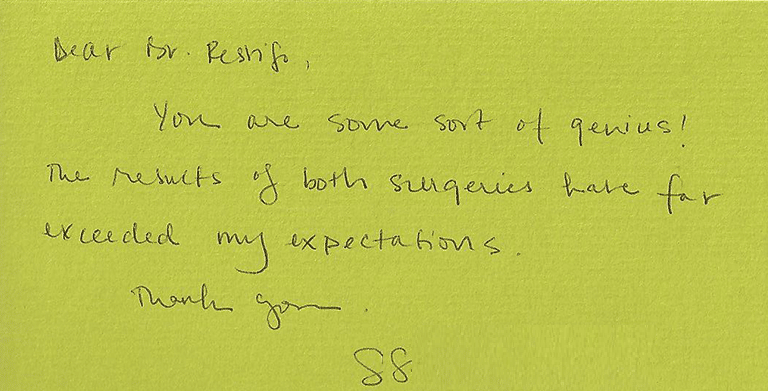 Dear Dr. Restifo,
You are some sort of genius!
The results of both surgeries have far
exceeded my expectations.
Thank you.
SS